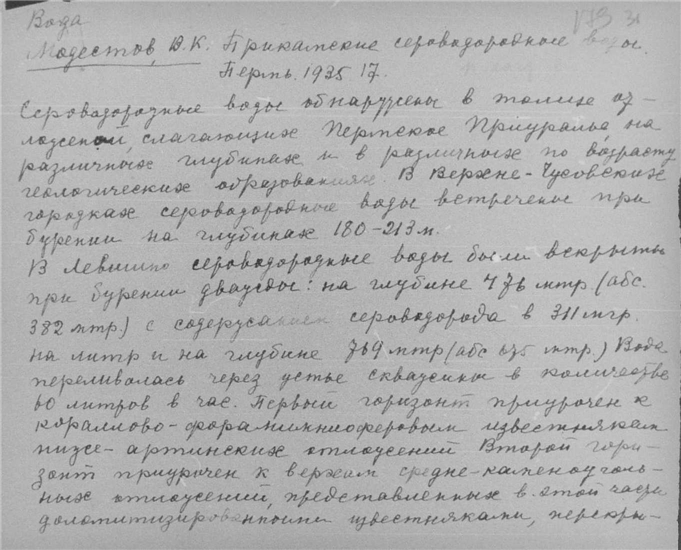 Вода
173 31
Модестов, В.К. Прикамские сероводородные воды.
Пермь. 1935 17.
Сероводородные воды обнаружены в толще от-
ложений, слагающих Пермское Приуралье, на
различных глубинах и в различных по возрасту
геологических образованиях. В Верхне-Чусовских
городках сероводородные воды встречены при
бурении на глубинах 180-213 м.
В Левшино сероводородные воды были вскрыты
при бурении дважды: на глубине 476 мтр (абс.
382 мтр.) с содержанием сероводорода в 311 мгр.
на литр и на глубине 769 мтр (абс 675 мтр.) Вода
переливалась через устье скважины в количестве
60 литров в час. Первый горизонт приурочен к
кораллово-фораминиоферовым известнякам
ниже-артинских отложений Второй гори-
зонт приурочен к верхам средне-каменоуголь-
ных отложений, представленных в этой части
доломитизированными известняками, перекры-